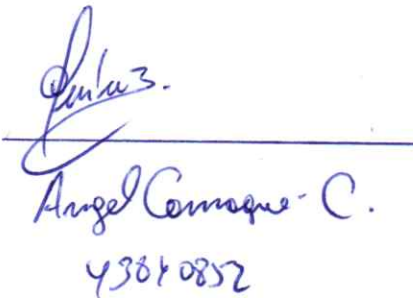 Angel Camaque C.
43840852